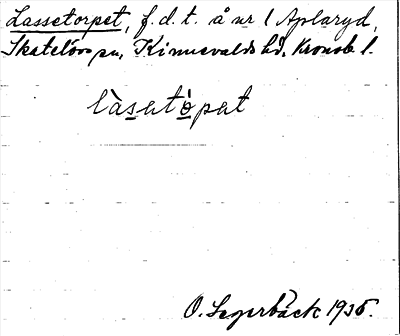 Lassetorpet, f.d.t. å nr 1 Aplaryd,
Skatelövs sn, Kinnevalds hd, Kronob. l.
làsatòpat
O. Segerbäck 1935.